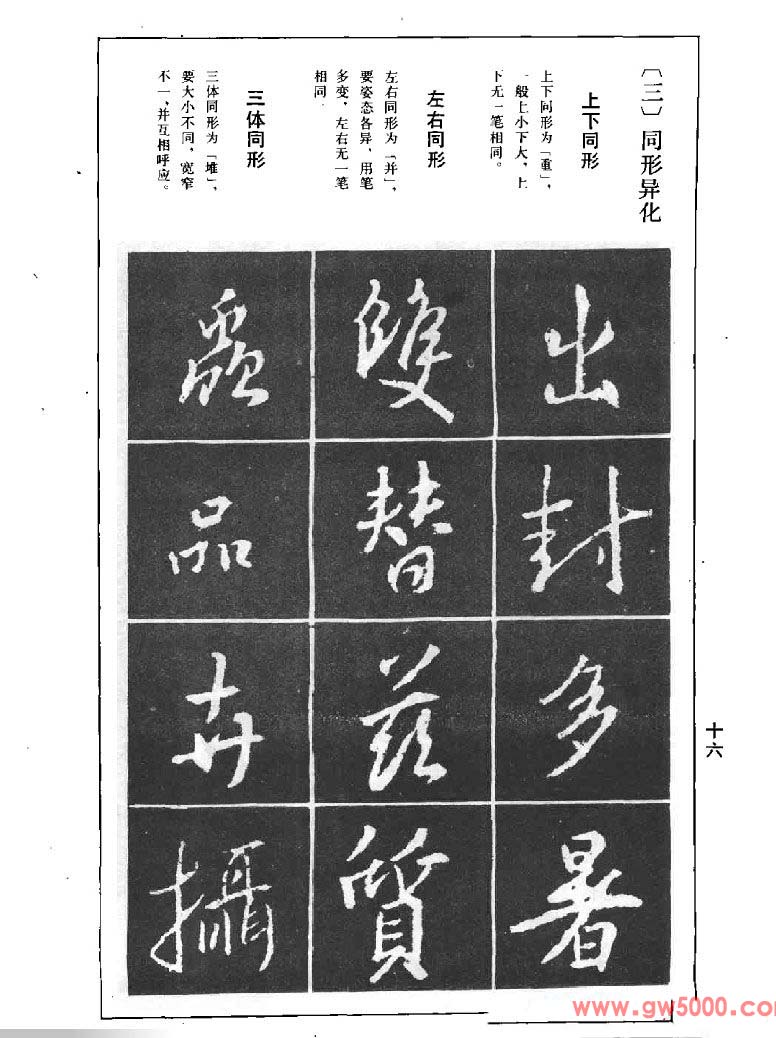 〔三〕同形异化
上下同形
上下同形为「重」，
一般上小下大，上
下无一笔相同。
左右同形
左右同形为「并」，
要姿态各异，用笔
多变，左右无一笔
相同。
三体同形
三体同形为「堆」，
要大小不同，宽窄
不一，并互相呼应。
出
封
多
暑
雙
替
茲
質
品
卉
攝
十六
www.gw5000.com